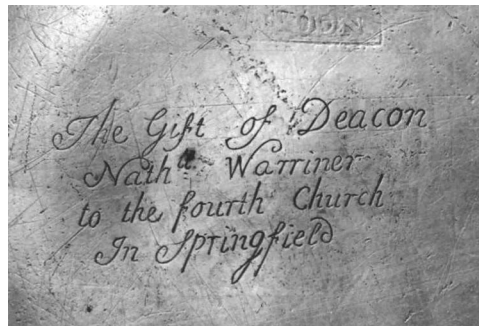 The Gift of Deacon
Nath^ll Warriner
to the fourth Church
In Springfield